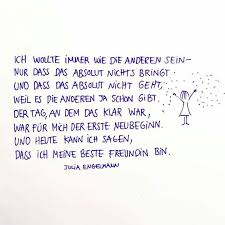 ICH WOLLTE IMMER WIE DIE ANDEREN SEIN –
NUR DASS DAS ABSOLUT NICHTS BRINGT
UND DASS DAS ABSOLUT NICHT GEHT,
WEIL ES DIE ANDEREN JA SCHON GIBT.
DER TAG, AN DEM DAS KLAR WAR,
WAR FÜR MICH DER ERSTE NEUBEGINN.
UND HEUTE KANN ICH SAGEN,
DASS ICH MEINE BESTE FREUNDIN BIN.
JULIA ENGELMANN